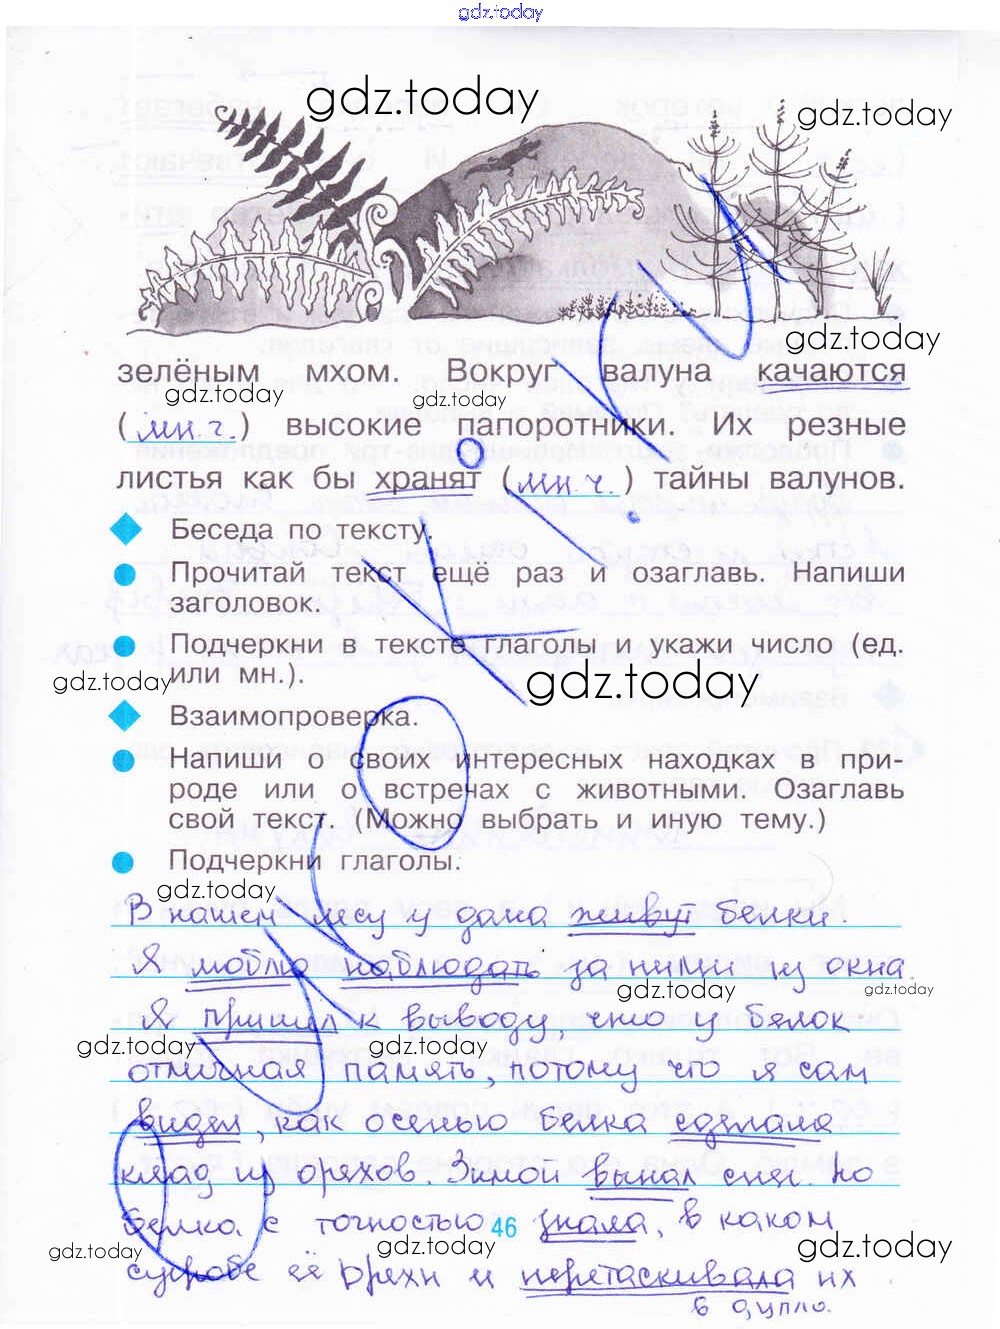 gdz.today
gdz.today
gdz.today
gdz.today
зелёным мхом. Вокруг валуна качаются
gdz.today
gdz.today
(мн.ч.) высокие папоротники. Их резные
листья как бы хранят (мн.ч.) тайны валунов.
Беседа по тексту.
Прочитай текст ещё раз и озаглавь. Напиши
заголовок.
Подчеркни в тексте глаголы и укажи число (ед.
или мн.).
gdz.today
gdz.today
Взаимопроверка.
Напиши о своих интересных находках в при-
роде или о встречах с животными. Озаглавь
свой текст. (Можно выбрать и иную тему.)
Подчеркни глаголы.
gdz.today
В нашем лесу у дома живут белки.
Я люблю наблюдать за ними из окна.
gdz.today
gdz.today
Я пришёл к выводу, что у белок
gdz.today
gdz.today
отличная память, потому что я сам
видел, как осенью белка сделала
клад из орехов. Зимой выпал снег. Но
белка с точностью знала, в каком
46
gdz.today
gdz.today
gdz.today
сугробе её орехи и перетаскивала их
в дупло.